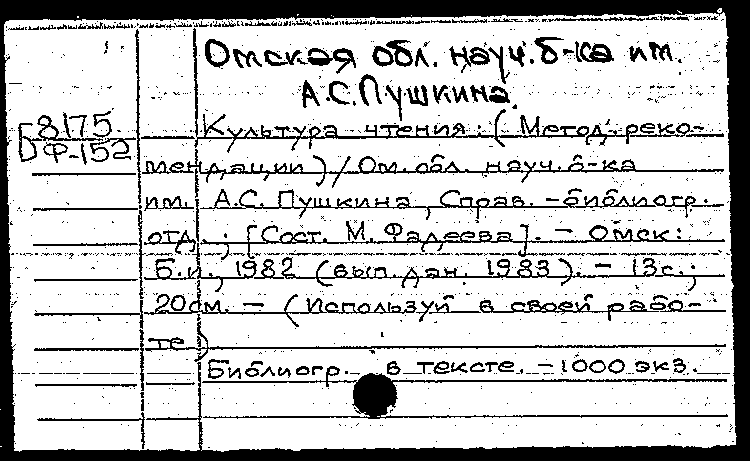 Омская обл. науч. б-ка им.
А.С.Пушкина.
Б 8175
Ф-152
Культура чтения : ( Метод. реко-
мендации ) / Ом. обл. науч. б-ка
им. А.С. Пушкина, Справ. - библиогр.
отд. ; [Сост. М. Фадеева]. - Омск :
Б.и., 1982 (вып. дан. 1983). - 13с. ;
20см. - (Используй в своей рабо-
те)
Библиогр. в тексте. - 1000 экз.